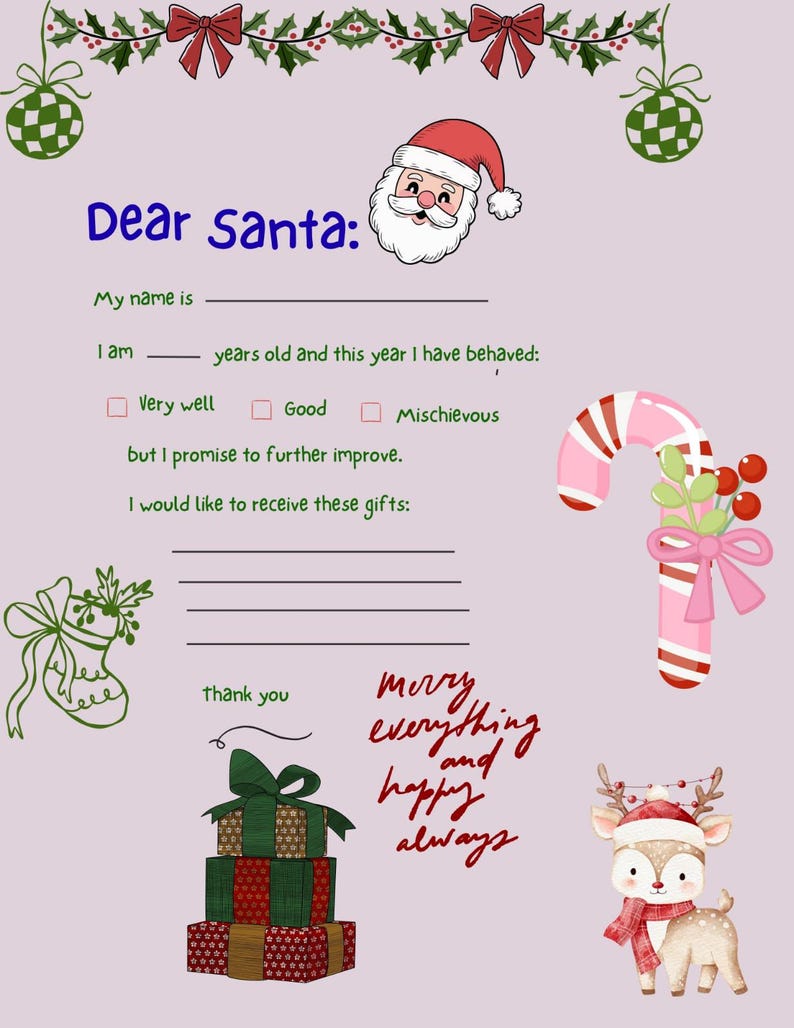 Dear Santa:
My name is
I am years old and this year I have behaved:
Very well Good Mischievous
but I promise to further improve.
I would like to receive these gifts:
thank you
merry
everything
and
happy
always